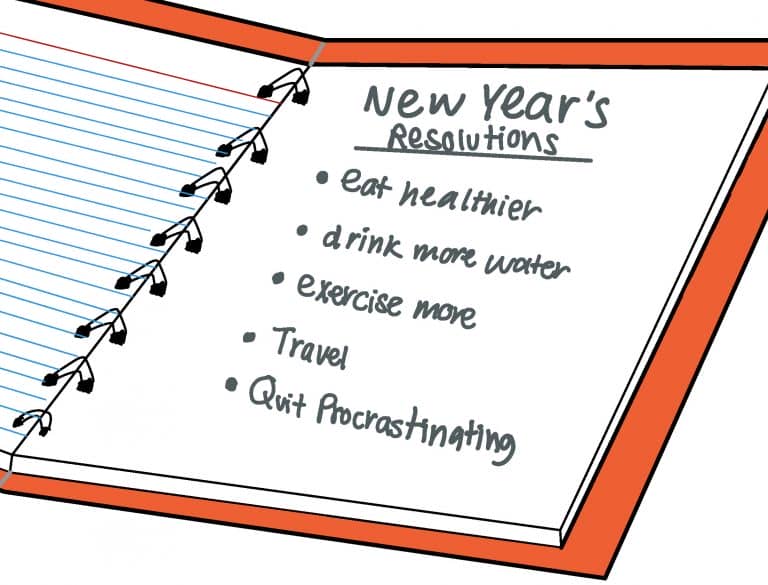 New Year's
Resolutions
• eat healthier
• drink more water
• exercise more
• Travel
• Quit Procrastinating